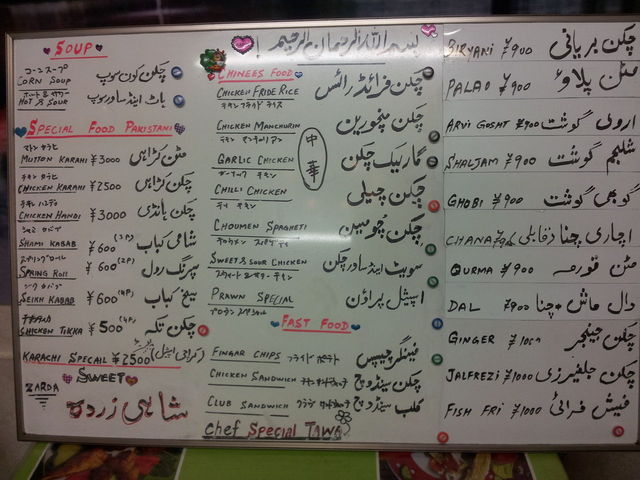 بسم اللہ الرحمان الرحیم !
SOUP
コーンスープ
CORN SOUP چکن کون سوپ
HOT & SOUR ہاٹ اینڈ ساور سوپ
SPECIAL FOOD PAKISTANI
MUTTON KARAHI ¥3000 مٹن کڑاہی
CHICKEN KARAHI ¥2500 چکن کڑاہی
CHICKEN HANDI ¥3000 چکن ہانڈی
SHAMI KABAB ¥600 شامی کباب
SPRING ROLL ¥600 (2P) سپرنگ رول
SEIKH KABAB ¥600 (4P) سیخ کباب
CHICKEN TIKKA ¥500 (4P) چکن تکہ
KARACHI SPECAIL ¥2500
SWEET
ZARDA شاہی زردہ
CHINEES FOOD
CHICKEN FRIDE RICE چکن فرائڈ رائس
CHICKEN MANCHURIN چکن منچورین
中華
GARLIC CHICKEN گارلیک چکن
CHILLI CHICKEN چکن چیلی
CHOUMEN SPAGHETI چکن چومین
SWEET & SOUR CHICKEN سویٹ اینڈ ساور چکن
PRAWN SPECIAL اسپیشل پراؤن
FAST FOOD
FINGAR CHIPS フライドポテト فینگر چیپس
CHICKEN SANDWICH چکن سینڈوچ
CLUB SANDWICH کلب سینڈوچ
Chef Special TAWA
BIRYANI ¥900 چکن بریانی
PALAO ¥900 مٹن پلاؤ
ARVI GOSHT ¥900 اروی گوشت
SHALJAM ¥900 شلجم گوشت
GHOBI ¥900 گوبھی گوشت
CHANA اچاری چنا
QURMA ¥900 مٹن قورمہ
DAL ¥900 دال ماش + چنا
GINGER ¥1000 چکن جینجر
JALFREZI ¥1000 چکن جلفریزی
FISH FRI ¥1000 فیش فرائی